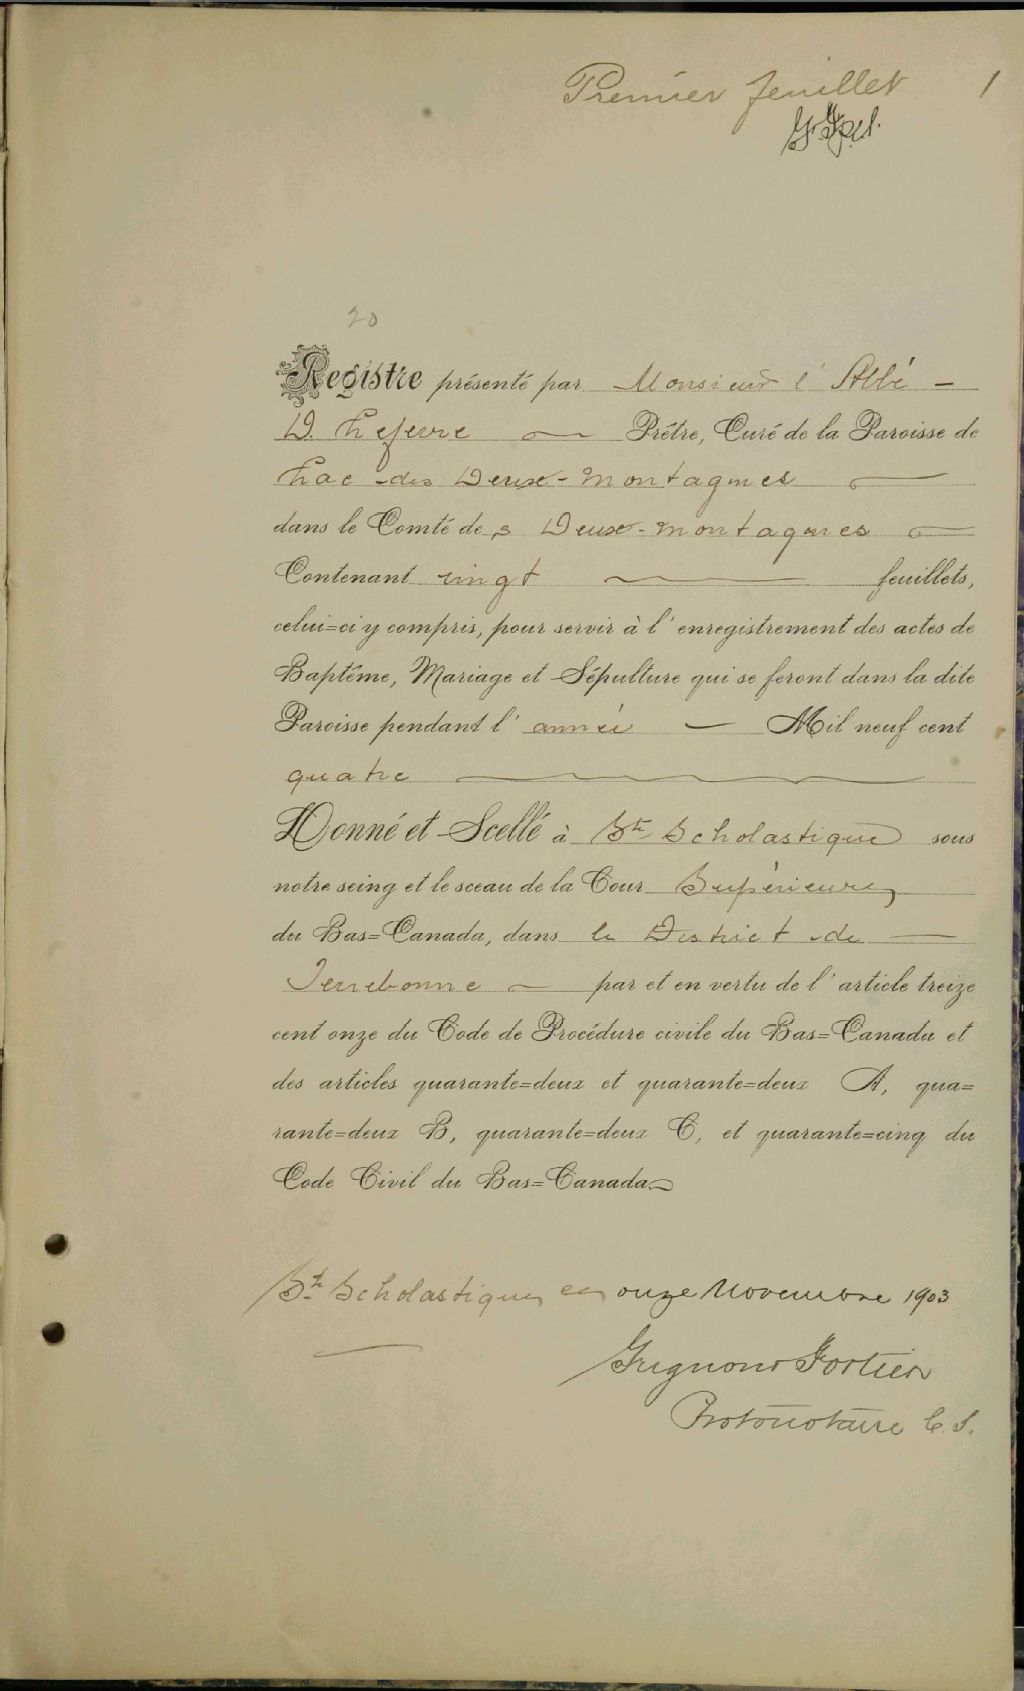 Premier feuillet 1
20
Registre présenté par Monsieur l'Abbé -
D. Lefevre Prêtre, Curé de la Paroisse de
Lac des Deux-Montagnes
dans le Comté de s Deux-Montagnes
Contenant vingt feuillets,
celui=ci y compris, pour servir à l'enregistrement des actes de
Baptême, Mariage et Sépulture qui se feront dans la dite
Paroisse pendant l'année — Mil neuf cent
quatre
Donné et Scellé à Ste Scholastique sous
notre seing et le sceau de la Cour Supérieure
du Bas=Canada, dans le District de
Terrebonne par et en vertu de l'article treize
cent onze du Code de Procédure civile du Bas=Canada et
des articles quarante=deux et quarante=deux A, qua=
rante=deux B, quarante=deux C, et quarante=cinq du
Code Civil du Bas=Canada
Ste Scholastique, ce onze Novembre 1903
Grignon Fortier
Protonotaire C. S.